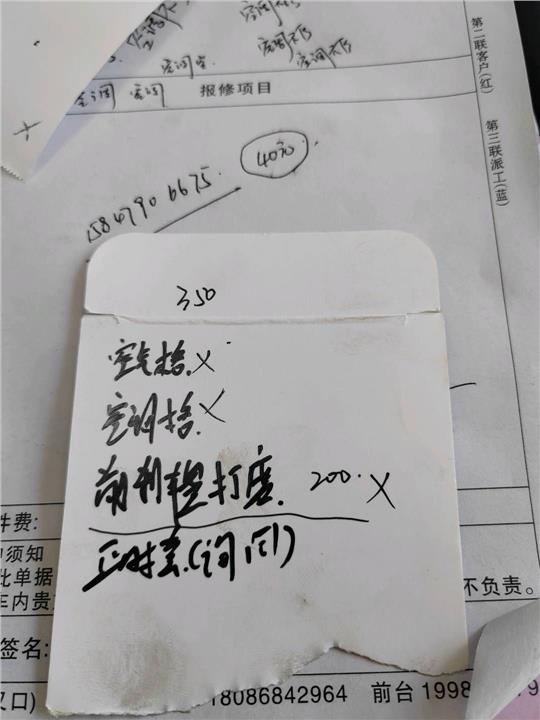 空调不
空调不
空调
空调不
空调 空调 报修项目
第二联客户(红)
第三联派工(蓝)
15847906675. 4070
350
空气格. X
空调格. X
前刹车盘打磨. 200. X
正时套(询问)
件费:
户须知
此单据
车内贵
不负责。
签名:
叉口)
18086842964 前台 1998
79